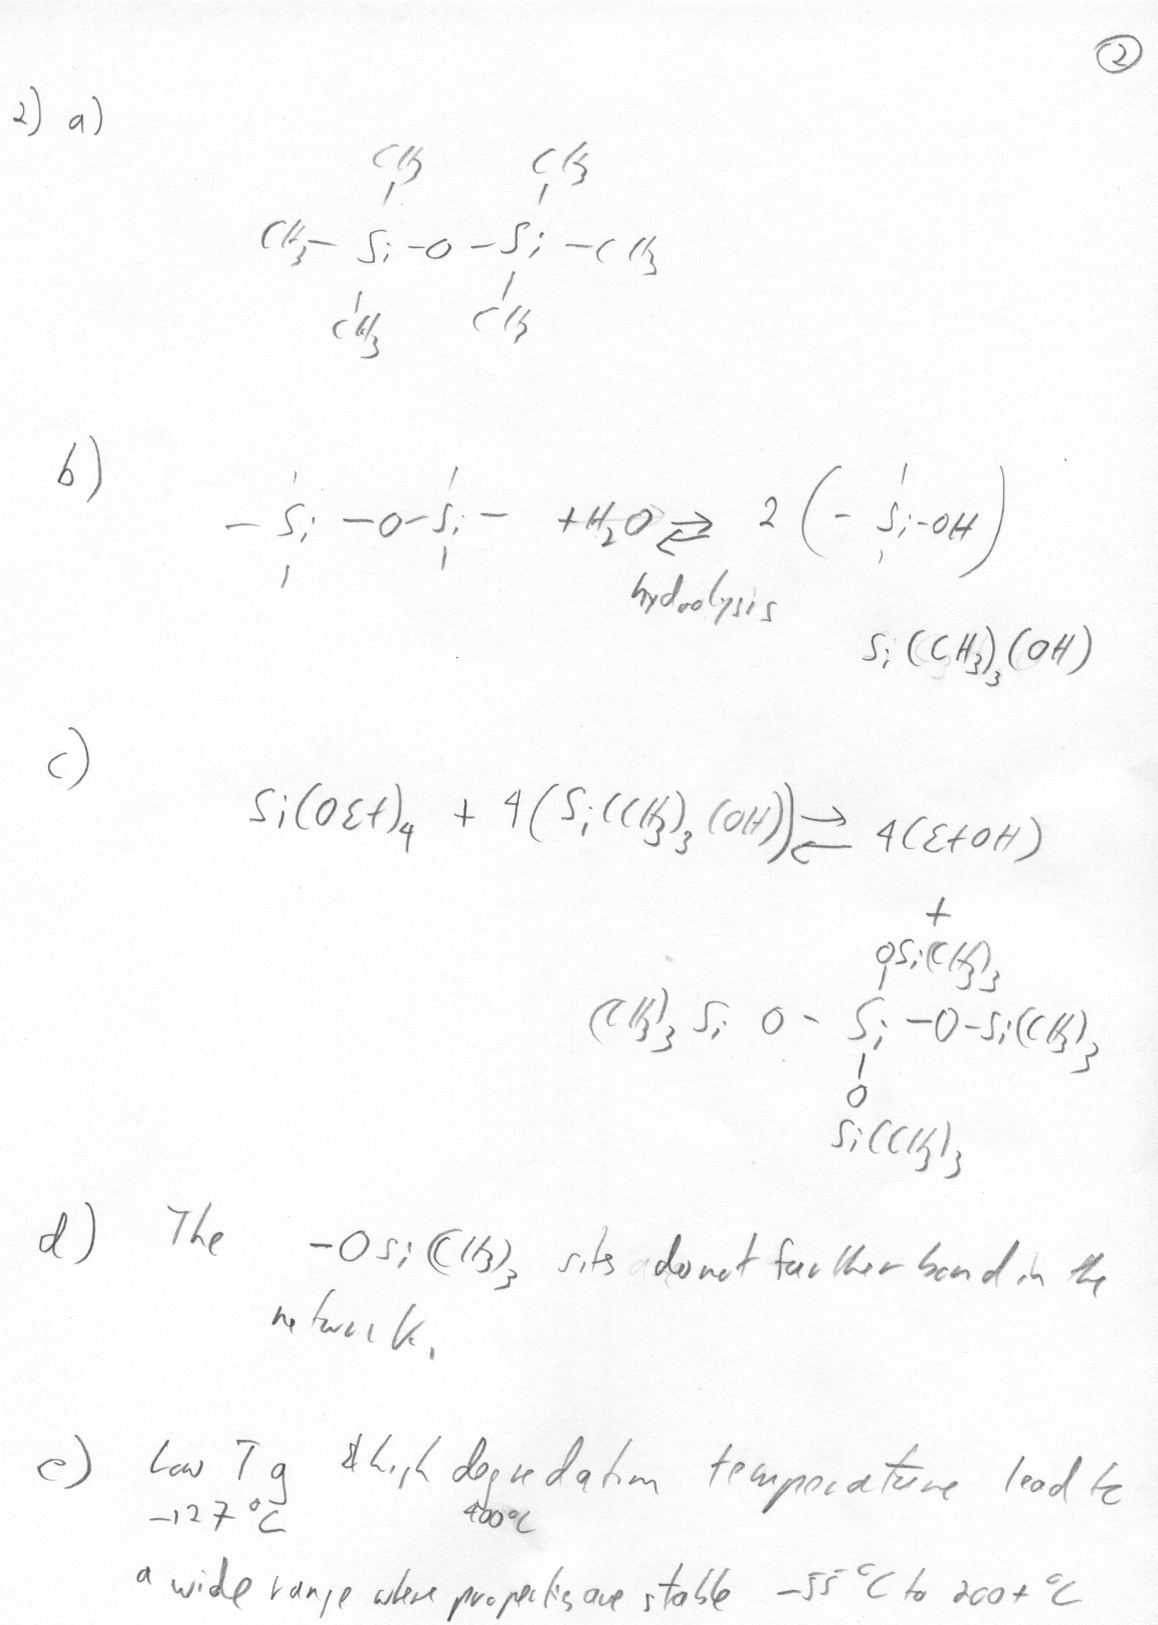 2
2) a)
CH3 CH3
CH3 – Si – O – Si – CH3
CH3 CH3
b)
– Si – O – Si – + H2O ⇌ 2 ( – Si – OH )
hydrolysis
Si (CH3)3 (OH)
c)
Si(OEt)4 + 4(Si(CH3)3 (OH)) ⇌ 4(EtOH)
+
OSi(CH3)3
(CH3)3 Si O – Si – O – Si(CH3)3
O
Si(CH3)3
d) The –OSi(CH3)3 sites do not further bond in the
network.
e) Low Tg & high degredation temperature lead to
–127 °C 400°C
a wide range where properties are stable –55 °C to 200+ °C